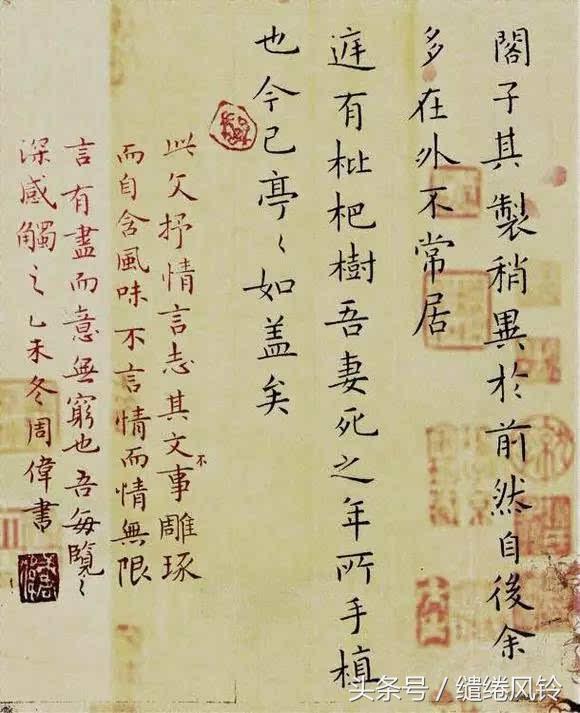 閣子其製稍異於前然自後余
多在外不常居
庭有枇杷樹吾妻死之年所手植
也今已亭〻如盖矣
此文抒情言志其文不事雕琢
而自含風味不言情而情無限
言有盡而意無窮也吾每覽〻
深感觸之乙未冬周偉書
头条号 / 缱绻风铃